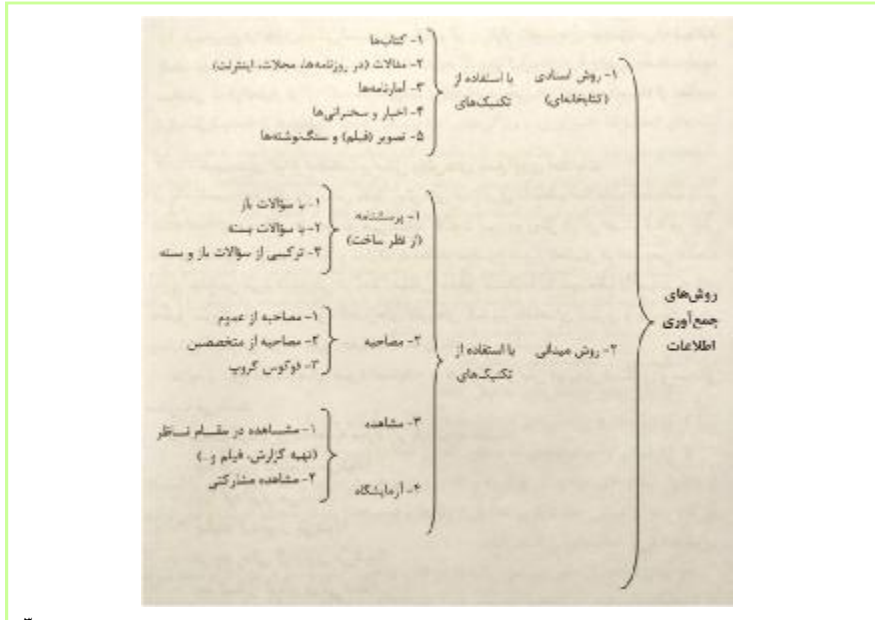 روش‌های
جمع‌آوری
اطلاعات
۱- روش اسنادی
(کتابخانه‌ای)
با استفاده از
تکنیک‌های
۱- کتاب‌ها
۲- مقالات (در روزنامه‌ها، مجلات، اینترنت)
۳- آمارنامه‌ها
۴- اخبار و سخنرانی‌ها
۵- تصویر (فیلم) و سنگ‌نوشته‌ها
۲- روش میدانی
با استفاده از
تکنیک‌های
۱- پرسشنامه
(از نظر ساخت)
۱- با سؤالات باز
۲- با سؤالات بسته
۳- ترکیبی از سؤالات باز و بسته
۲- مصاحبه
۱- مصاحبه از عموم
۲- مصاحبه از متخصصین
۳- فوکوس گروپ
۳- مشاهده
۱- مشاهده در مقام ناظر
(تهیه گزارش، فیلم و..)
۲- مشاهده مشارکتی
۴- آزمایشگاه
۳